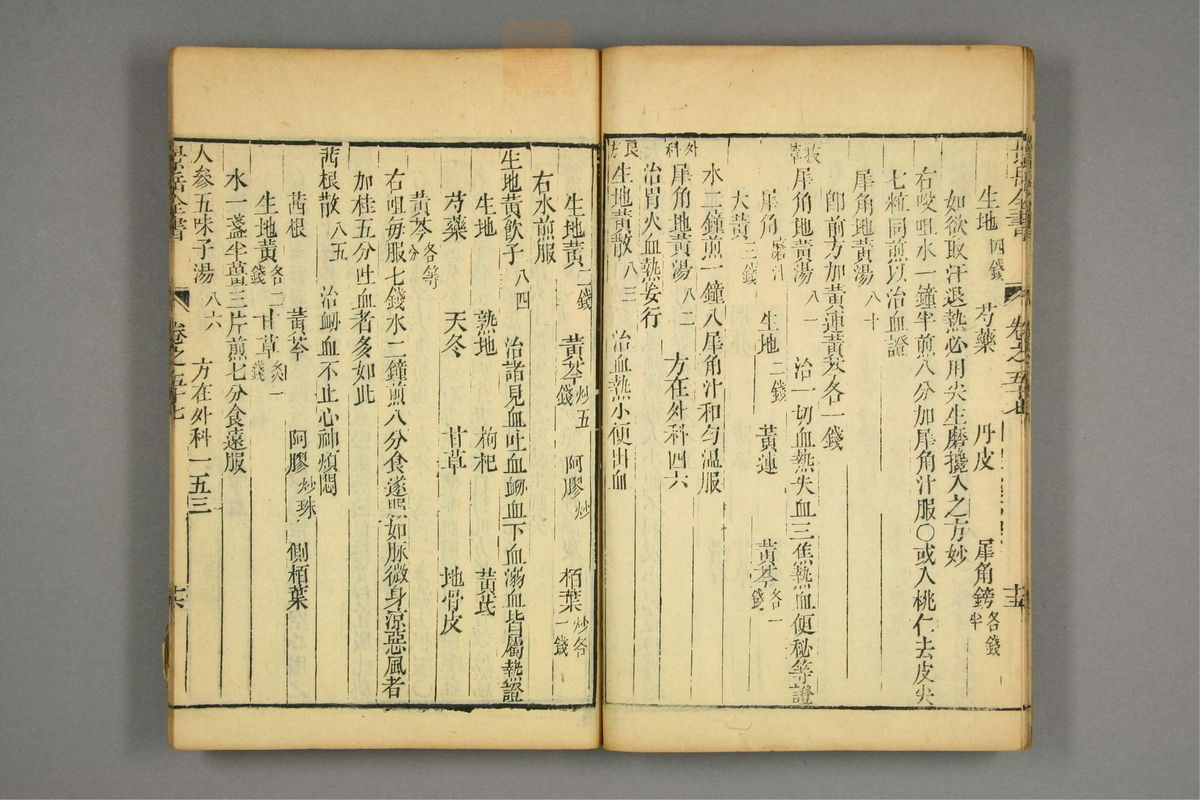 景岳全書 卷之五十七 十五
生地四錢 芍藥 丹皮 犀角鎊各錢半
如欲取汗退熱必用尖生磨攙入之方妙
右㕮咀水一鐘半煎八分加犀角汁服〇或入桃仁去皮尖
七粒同煎以治血證
犀角地黃湯八十
卽前方加黃連黃芩各一錢
拔萃犀角地黃湯八一 治一切血熱失血三焦熱血便秘等證
犀角磨汁 生地二錢 黃連 黃芩各一錢
大黃三錢
水二鐘煎一鐘入犀角汁和勻溫服
外科犀角地黃湯八二 方在外科四六
治胃火血熱妄行
良方生地黃散八三 治血熱小便出血
生地黃二錢 黃芩炒五錢 阿膠炒 栢葉炒各一錢
右水煎服
生地黃飲子八四 治諸見血吐血衂血下血溺血皆屬熱證
生地 熟地 枸杞 黃芪
芍藥 天冬 甘草 地骨皮
黃芩各等分
右咀每服七錢水二鐘煎八分食遠服如脉微身涼惡風者
加桂五分吐血者多如此
茜根散八五 治衂血不止心神煩悶
茜根 黃芩 阿膠炒珠 側栢葉
生地黃各二錢 甘草炙一錢
水一盞半薑三片煎七分食遠服
人參五味子湯八六 方在外科一五三
景岳全書 卷之五十七 十六